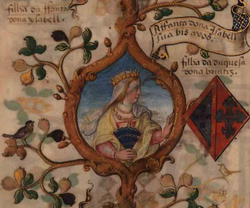 filha da Iffanta
dona ysabell
Iffanta dona ysabell
sua bis avoo
filha da duquesa
dona briatiz